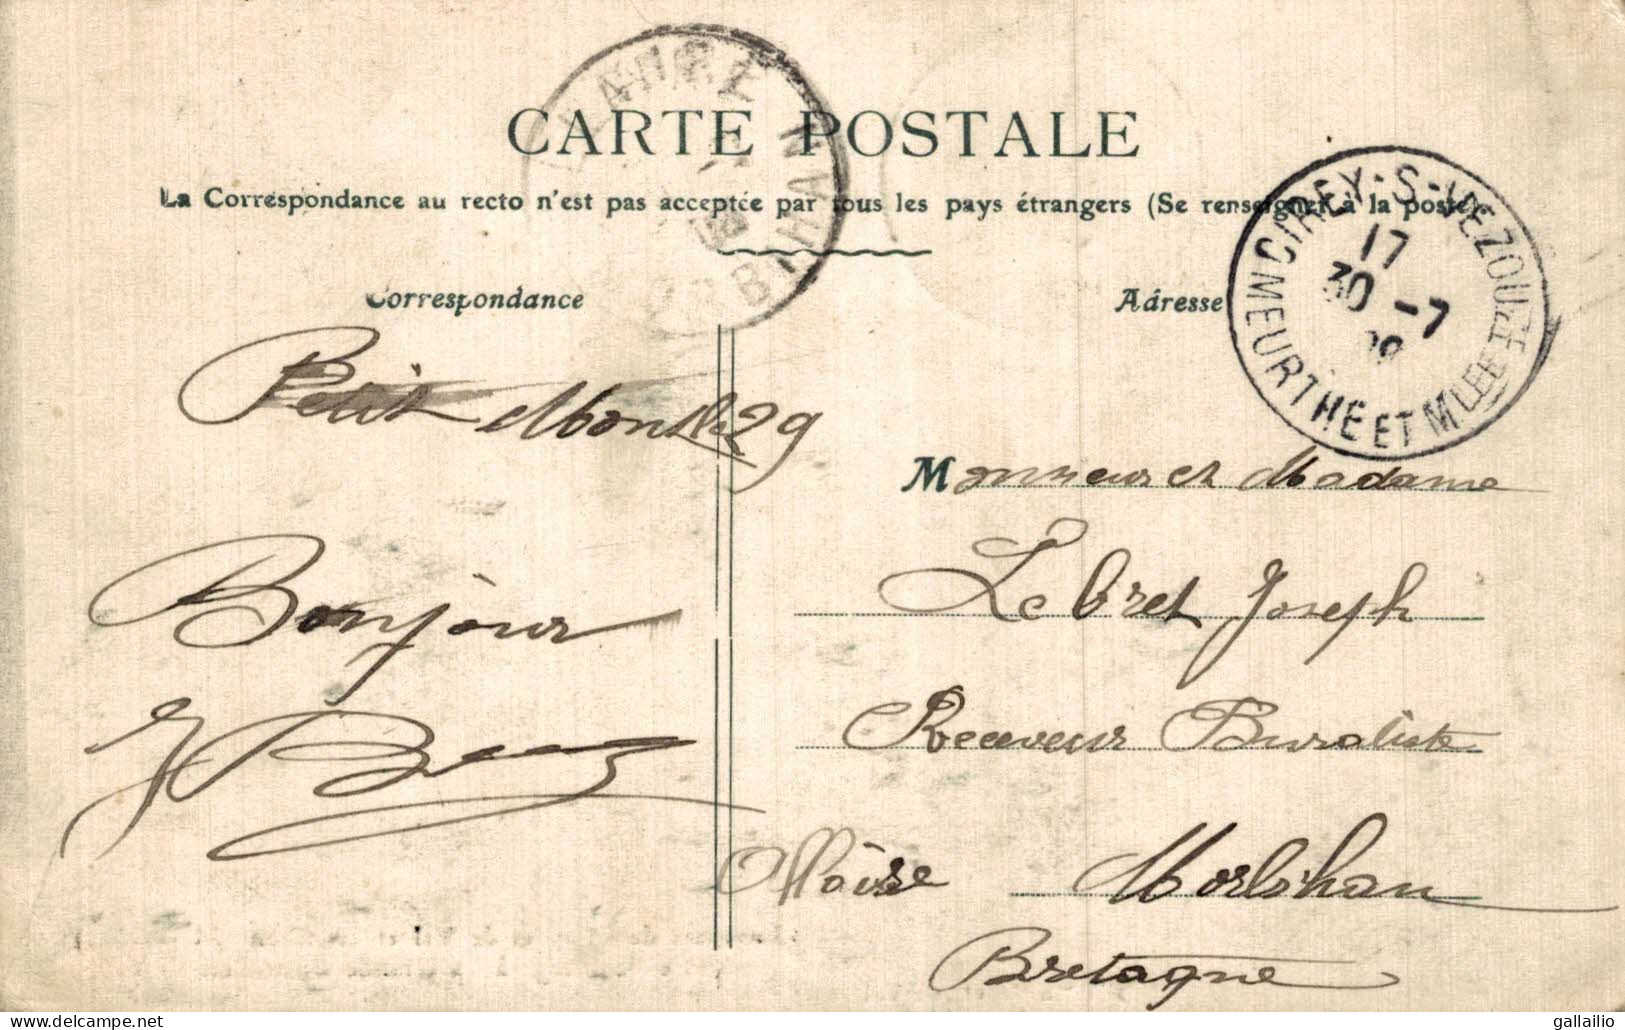 CARTE POSTALE
La Correspondance au recto n'est pas acceptée par tous les pays étrangers (Se renseigner à la poste)
Correspondance
Adresse
CIREY-S-VEZOUZE
17
30 -7
MEURTHE ET MLLE
Petit Mont le 29
Bonjour
Monsieur et Madame
Lebret Joseph
Receveur Buraliste
Allaire Morbihan
Bretagne
delcampe.net
gallailio